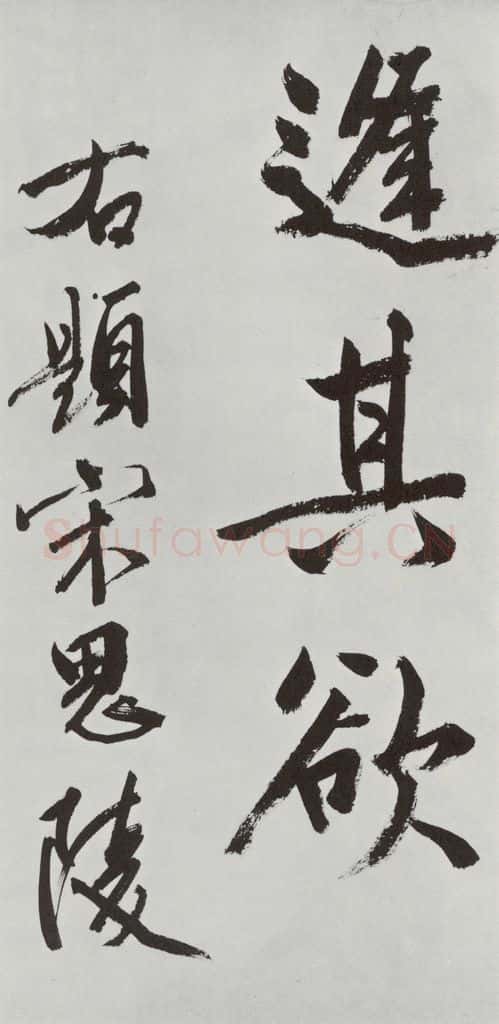 逢其欲
右題宋思陵
Shufawang.CN